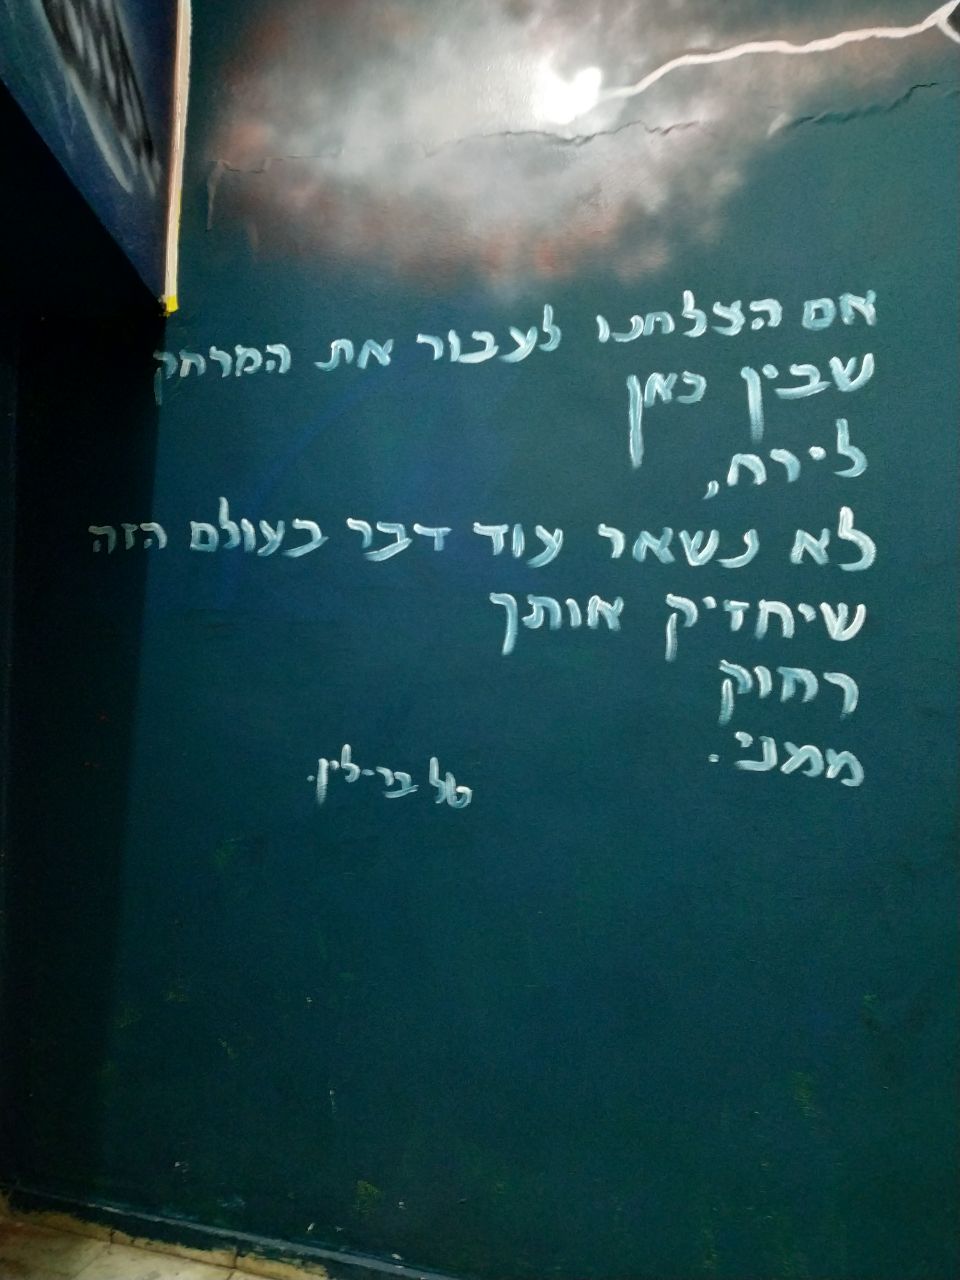 אם הצלחנו לעבור את המרחק
שבין כאן
לירח,
לא נשאר עוד דבר בעולם הזה
שיחזיק אותך
רחוק
ממני.
טל בר-לין.